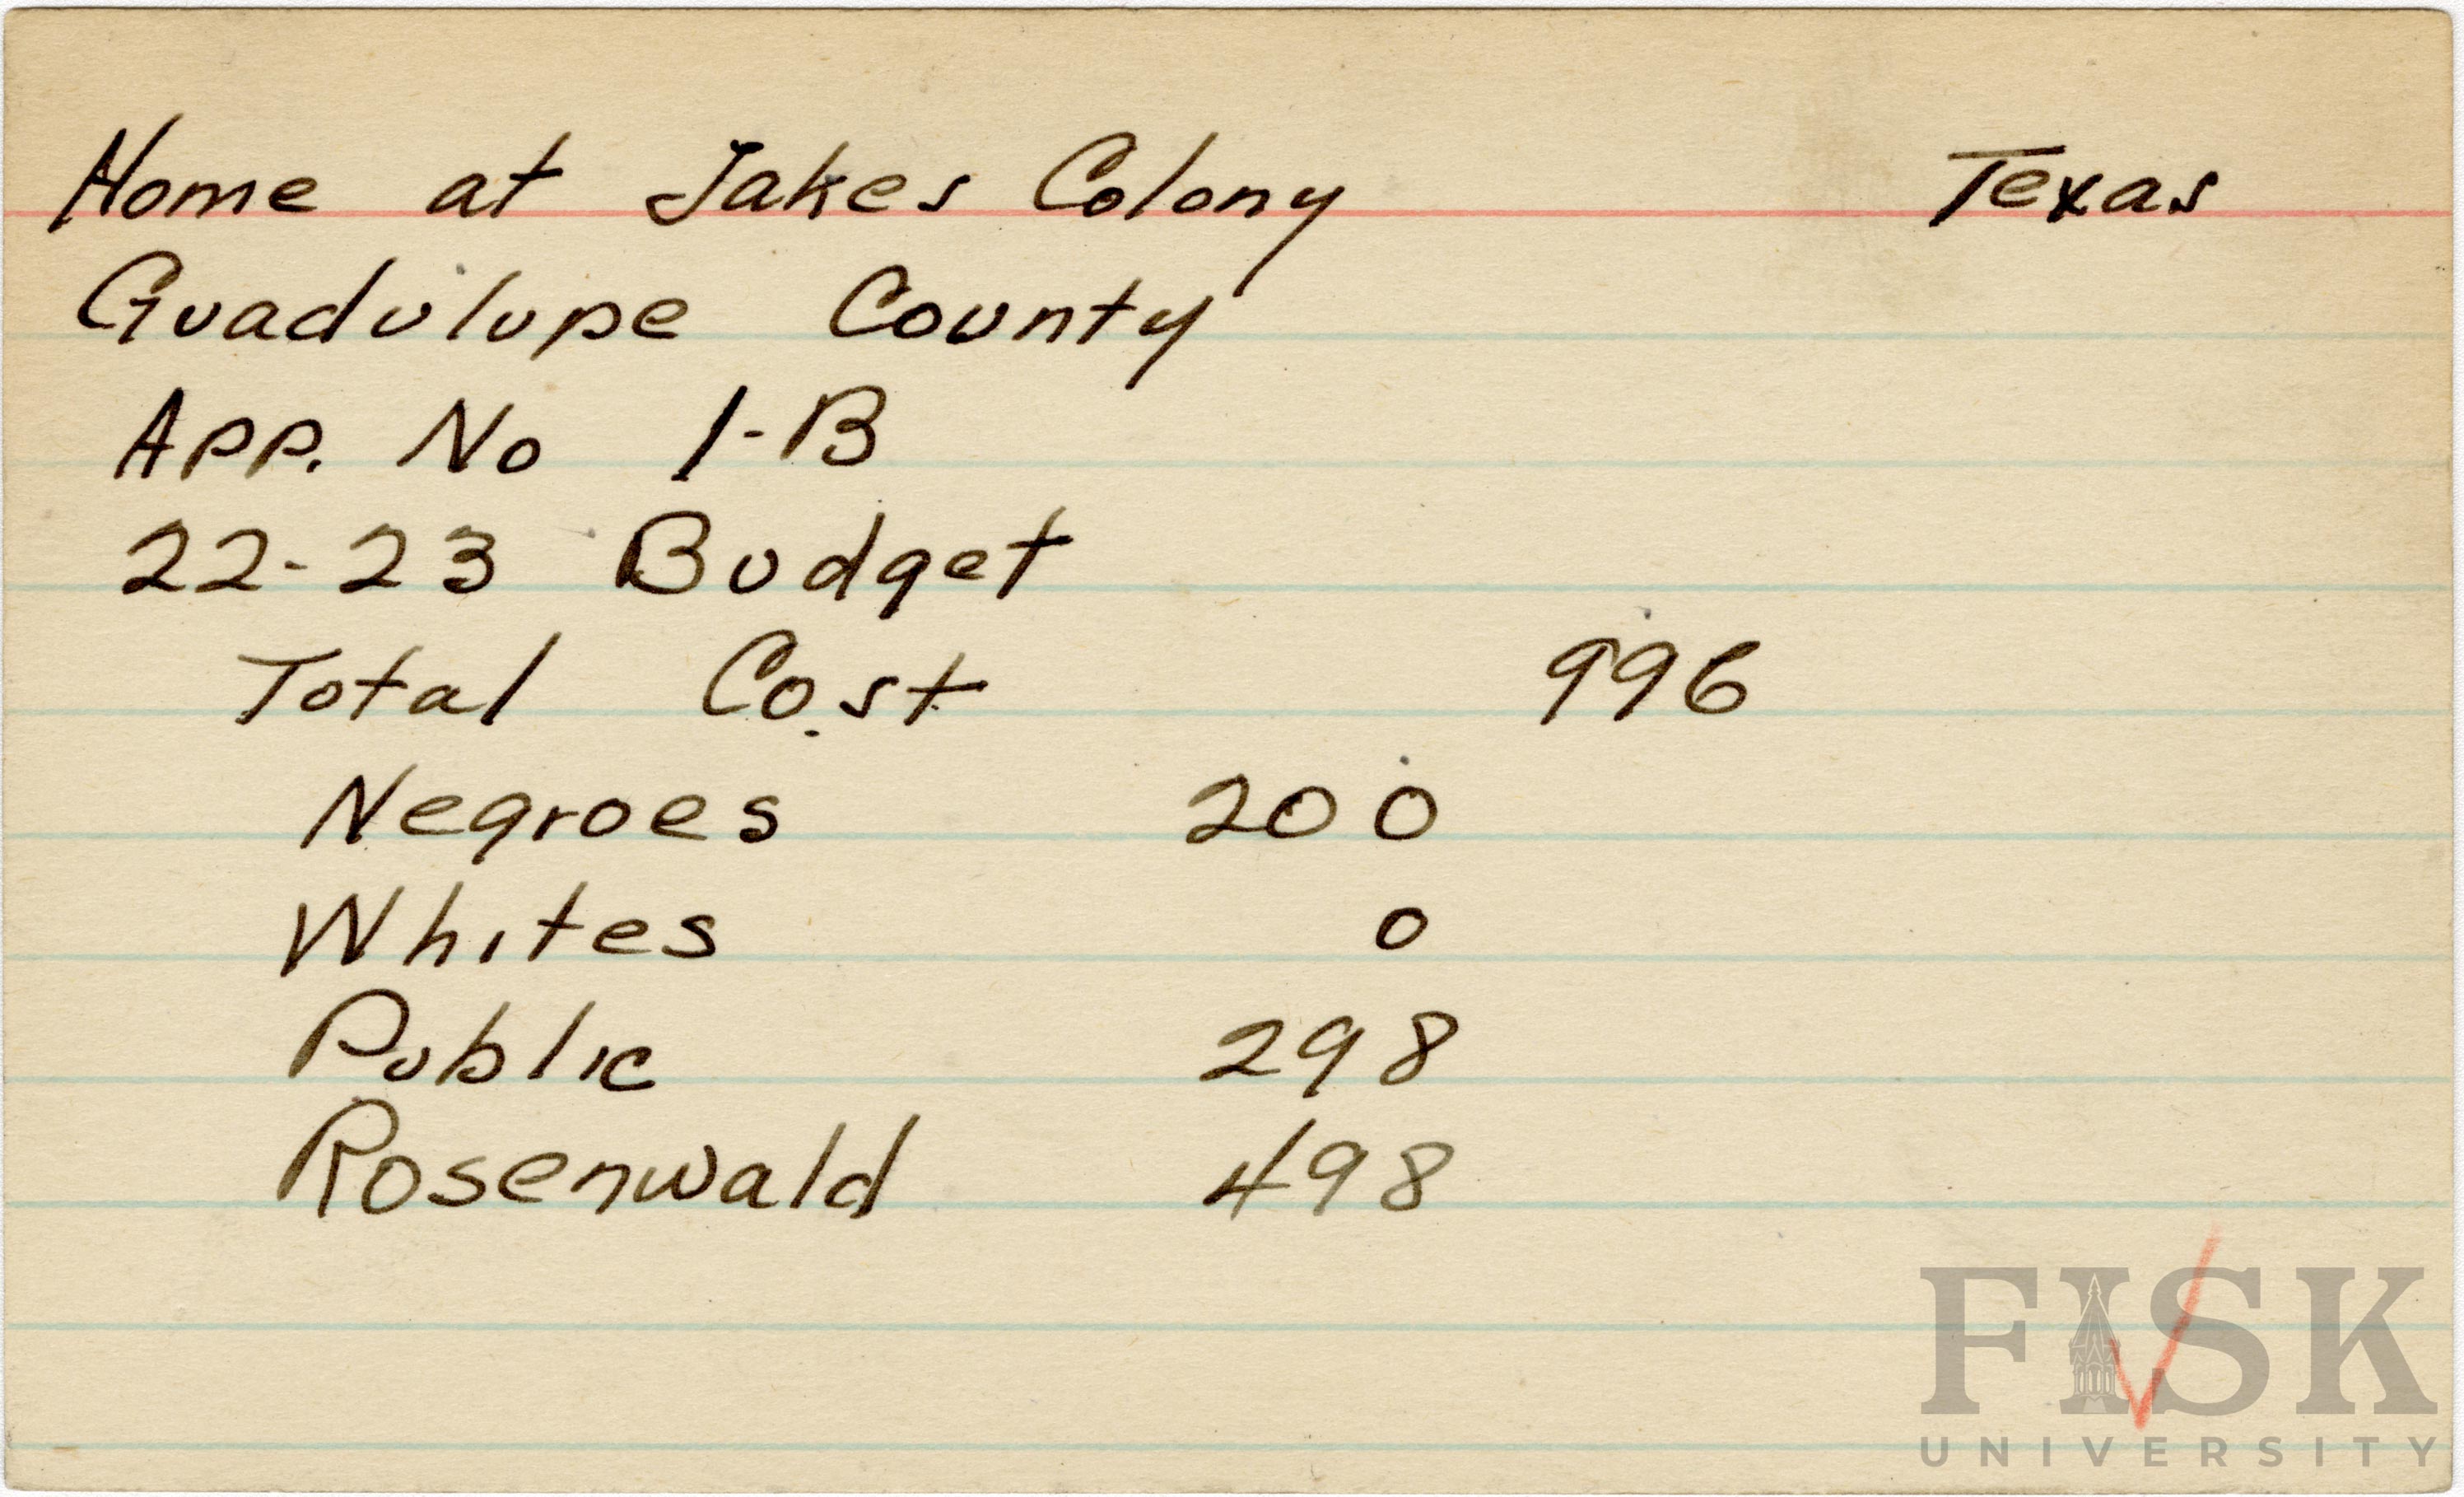 Home at Jakes Colony Texas
Guadulupe County
App. No 1-B
22-23 Budget
Total Cost 996
Negroes 200
Whites 0
Public 298
Rosenwald 498
FISK
UNIVERSITY